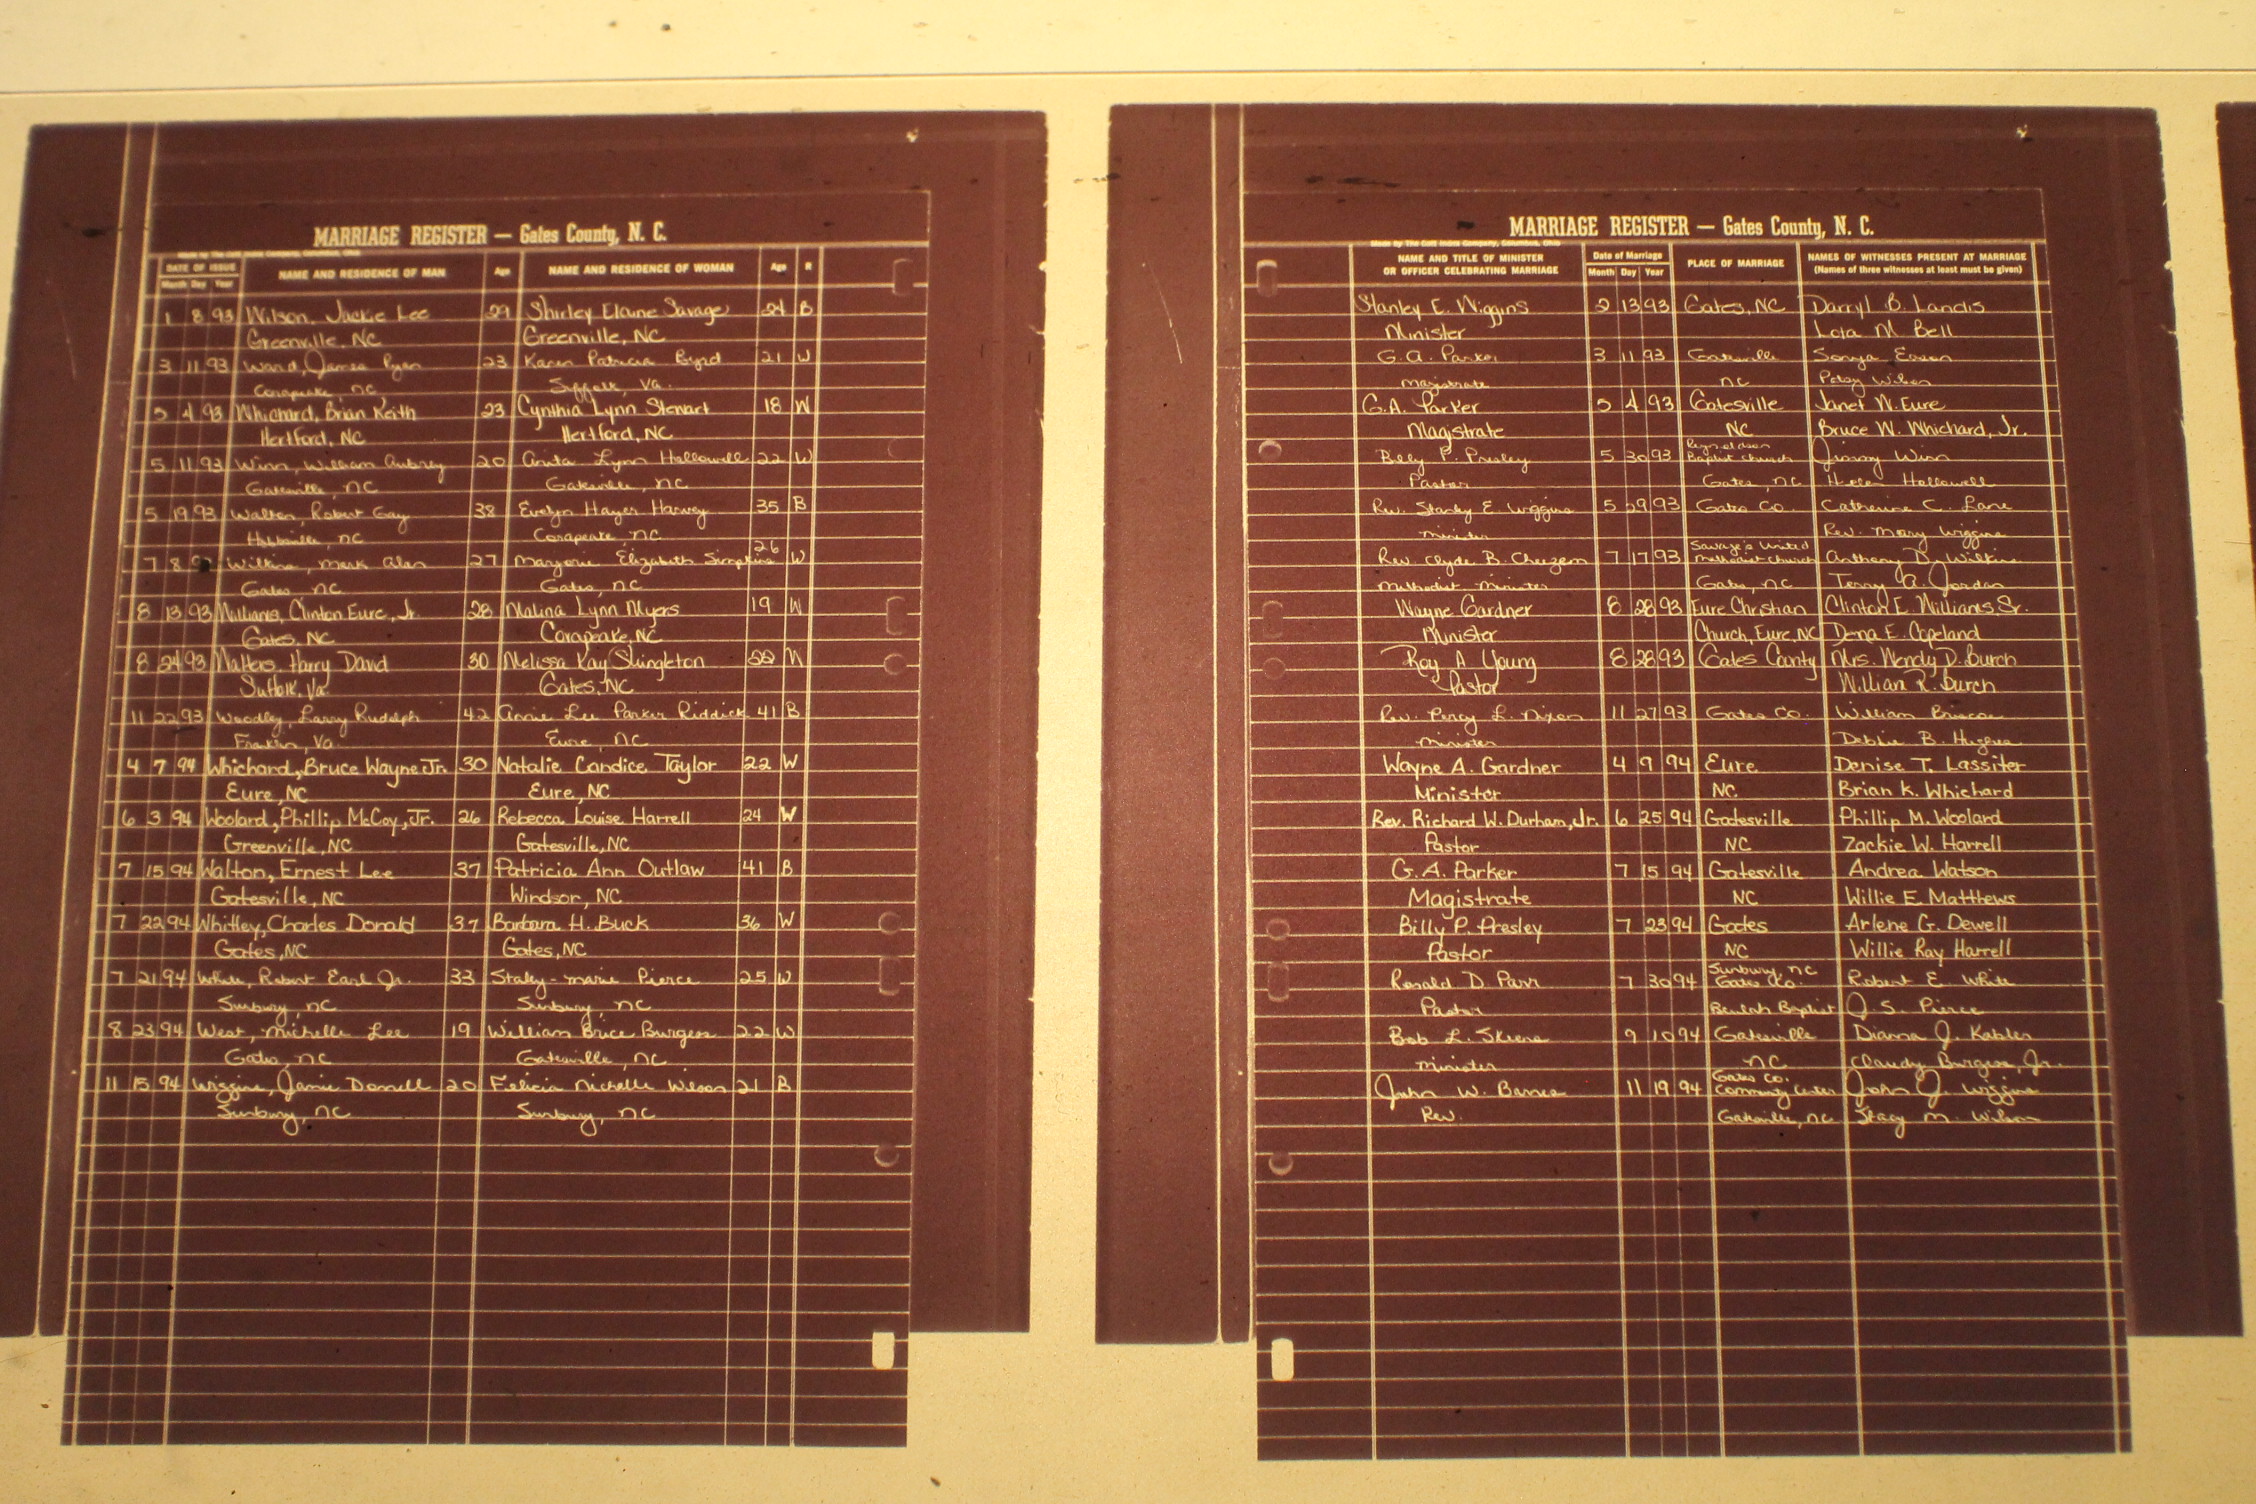 MARRIAGE REGISTER — Gates County, N. C.
DATE OF ISSUE NAME AND RESIDENCE OF MAN Age NAME AND RESIDENCE OF WOMAN Age R
Month Day Year
1 8 93 Wilson, Jackie Lee 29 Shirley Elaine Savage 24 B
Greenville, NC Greenville, NC
3 11 93 Ward, James Ryan 23 Karen Patricia Byrd 21 W
Corapeake, NC Suffolk, Va.
5 4 93 Whichard, Brian Keith 23 Cynthia Lynn Stewart 18 W
Hertford, NC Hertford, NC
5 11 93 Winn, William Aubrey 20 Anita Lynn Hollowell 22 W
Gatesville, NC Gatesville, NC
5 19 93 Walton, Robert Gay 38 Evelyn Hayer Harvey 35 B
Hobbsville, NC Corapeake, NC
7 8 Wilkins, Mark Alan 27 Marjorie Elizabeth Simpkins 26 W
Gates, NC Gates, NC
8 13 93 Williams, Clinton Eure, Jr. 28 Malina Lynn Myers 19 W
Gates, NC Corapeake, NC
8 24 93 Walters, Harry David 30 Melissa Kay Shingleton 22 W
Suffolk, Va. Gates, NC
11 22 93 Woodley, Larry Rudolph 42 Annie Lee Parker Riddick 41 B
Franklin, Va. Eure, NC
4 7 94 Whichard, Bruce Wayne Jr. 30 Natalie Candice Taylor 22 W
Eure, NC Eure, NC
6 3 94 Woolard, Phillip McCoy, Jr. 26 Rebecca Louise Harrell 24 W
Greenville, NC Gatesville, NC
7 15 94 Walton, Ernest Lee 37 Patricia Ann Outlaw 41 B
Gatesville, NC Windsor, NC
7 22 94 Whitley, Charles Donald 37 Barbara H. Buck 36 W
Gates, NC Gates, NC
7 21 94 White, Robert Earl Jr. 33 Staley-Marie Pierce 25 W
Sunbury, NC Sunbury, NC
8 23 94 West, Michelle Lee 19 William Brice Burgess 22 W
Gates, NC Gatesville, NC
11 15 94 Wiggins, Jamie Donnell 20 Felicia Nichelle Wilson 21 B
Sunbury, NC Sunbury, NC
MARRIAGE REGISTER — Gates County, N. C.
Made by The Cott Index Company, Columbus, Ohio
NAME AND TITLE OF MINISTER Date of Marriage PLACE OF MARRIAGE NAMES OF WITNESSES PRESENT AT MARRIAGE
OR OFFICER CELEBRATING MARRIAGE Month Day Year (Names of three witnesses at least must be given)
Stanley E. Wiggins 2 13 93 Gates, NC Darryl B. Landis
Minister Lota M. Bell
G. A. Parker 3 11 93 Gatesville Sonya Eason
Magistrate NC Patsy Wilson
G.A. Parker 5 4 93 Gatesville Janet W. Eure
Magistrate NC Bruce W. Whichard, Jr.
Billy P. Presley 5 30 93 Reynoldson Baptist Church Jimmy Winn
Pastor Gates, NC Helen Hollowell
Rev. Stanley E. Wiggins 5 29 93 Gates Co. Catherine C. Lane
Minister Rev. Mary Wiggins
Rev. Clyde B. 7 17 93 Savage's United Methodist Church Anthony D. Wilkins
Methodist Minister Gates, NC Terry A. Jordan
Wayne Gardner 8 28 93 Eure Christian Clinton E. Williams, Sr.
Minister Church, Eure, NC Dena E. Copeland
Roy A. Young 8 28 93 Gates County Mrs. Wendy D. Burch
Pastor William R. Burch
Rev. Percy L. Nixon 11 27 93 Gates Co. William Briscoe
Minister Debbie B. Hughes
Wayne A. Gardner 4 9 94 Eure Denise T. Lassiter
Minister NC. Brian K. Whichard
Rev. Richard W. Durham, Jr. 6 25 94 Gatesville Phillip M. Woolard
Pastor NC Zackie W. Harrell
G.A. Parker 7 15 94 Gatesville Andrea Watson
Magistrate NC Willie E. Matthews
Billy P. Presley 7 23 94 Gates Arlene G. Dewell
Pastor NC Willie Ray Harrell
Ronald D. Parr 7 30 94 Sunbury, NC Gates Co. Robert E. White
Pastor Beulah Baptist J. S. Pierce
Bob L. 9 10 94 Gatesville Dianna J. Kahler
Minister NC Claudy Burgess, Jr.
John W. Barnes 11 19 94 Gates Co. Community Center John J. Wiggins
Rev. Gatesville, NC Stacy M. Wilson